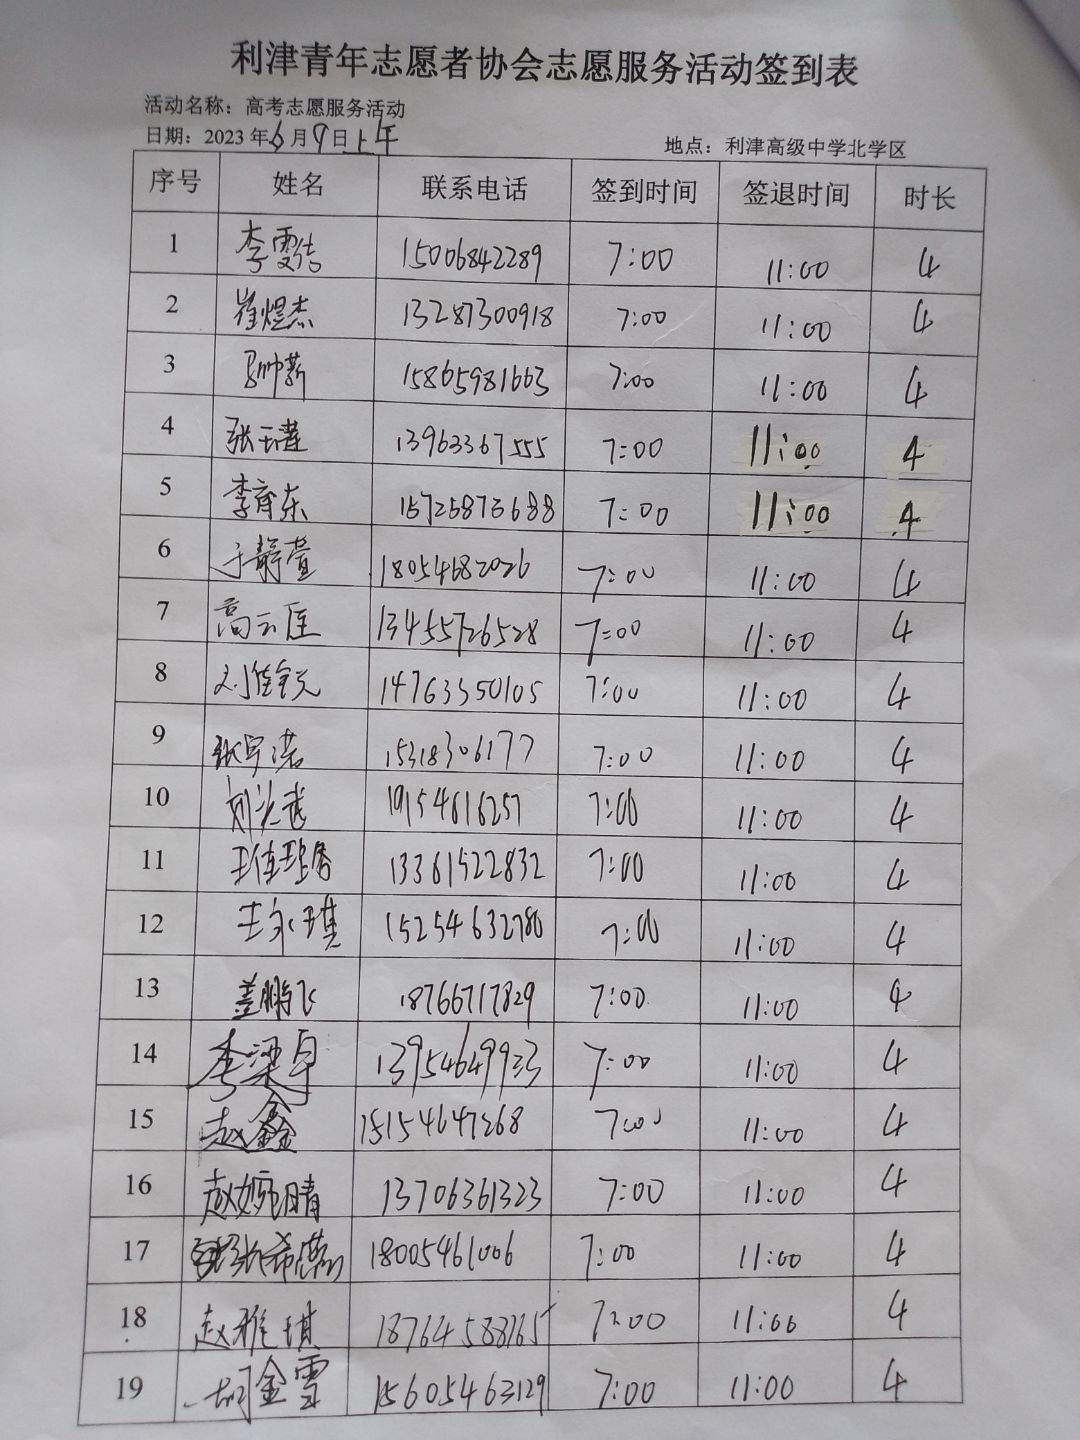 利津青年志愿者协会志愿服务活动签到表
活动名称：高考志愿服务活动
日期：2023年6月9日上午
地点：利津高级中学北学区
序号 姓名 联系电话 签到时间 签退时间 时长
1 李雯洁 15006842289 7:00 11:00 4
2 崔煜杰 13287300918 7:00 11:00 4
3 15865981663 7:00 11:00 4
4 13963367555 7:00 11:00 4
5 李育东 15725873688 7:00 11:00 4
6 于静萱 18054682026 7:00 11:00 4
7 高云匡 13455726528 7:00 11:00 4
8 14763350105 7:00 11:00 4
9 张宇诺 15318306177 7:00 11:00 4
10 19154616257 7:00 11:00 4
11 13361522832 7:00 11:00 4
12 王永琪 15254632780 7:00 11:00 4
13 盖鹏飞 18766717829 7:00 11:00 4
14 李梁卓 13954649933 7:00 11:00 4
15 赵鑫 15154647268 7:00 11:00 4
16 赵婉晴 13706361323 7:00 11:00 4
17 18005461006 7:00 11:00 4
18 赵雅琪 18764588165 7:00 11:00 4
19 胡金雪 15605463129 7:00 11:00 4